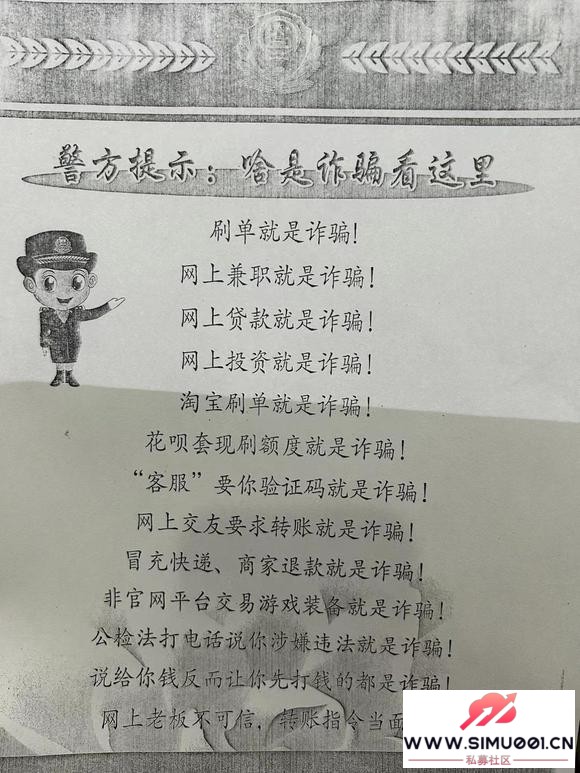 警方提示:啥是诈骗看这里
刷单就是诈骗!
网上兼职就是诈骗!
网上贷款就是诈骗!
网上投资就是诈骗!
淘宝刷单就是诈骗!
花呗套现刷额度就是诈骗!
“客服”要你验证码就是诈骗!
网上交友要求转账就是诈骗!
冒充快递、商家退款就是诈骗!
非官网平台交易游戏装备就是诈骗!
公检法打电话说你涉嫌违法就是诈骗!
说给你钱反而让你先打钱的都是诈骗!
网上老板不可信,转账指令当面
WWW.SIMU001.CN
私募社区